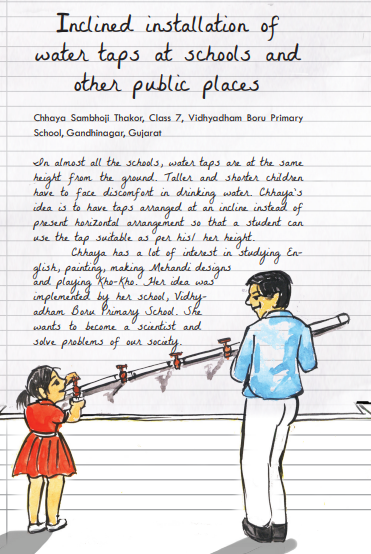 Inclined installation of
water taps at schools and
other public places
Chhaya Sambhoji Thakor, Class 7, Vidhyadham Boru Primary
School, Gandhinagar, Gujarat
In almost all the schools, water taps are at the same
height from the ground. Taller and shorter children
have to face discomfort in drinking water. Chhaya's
idea is to have taps arranged at an incline instead of
present horizontal arrangement so that a student can
use the tap suitable as per his/ her height.
Chhaya has a lot of interest in studying En-
glish, painting, making Mehandi designs
and playing Kho-Kho. Her idea was
implemented by her school, Vidhy-
adham Boru Primary School. She
wants to become a scientist and
solve problems of our society.